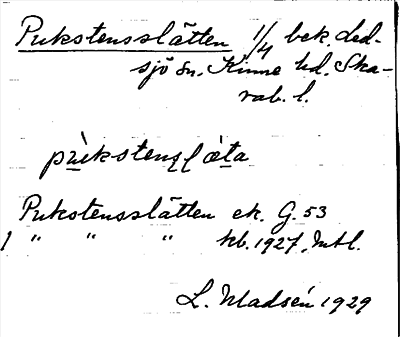 Pukstensslätten 1/4 bek. Led-
sjö sn. Kinne hd. Ska-
rab. l.
pùkstensslæ̀ta
Pukstensslätten ek. G. 53
1 " " " kb. 1927, Mtl.
L. Madsén 1929